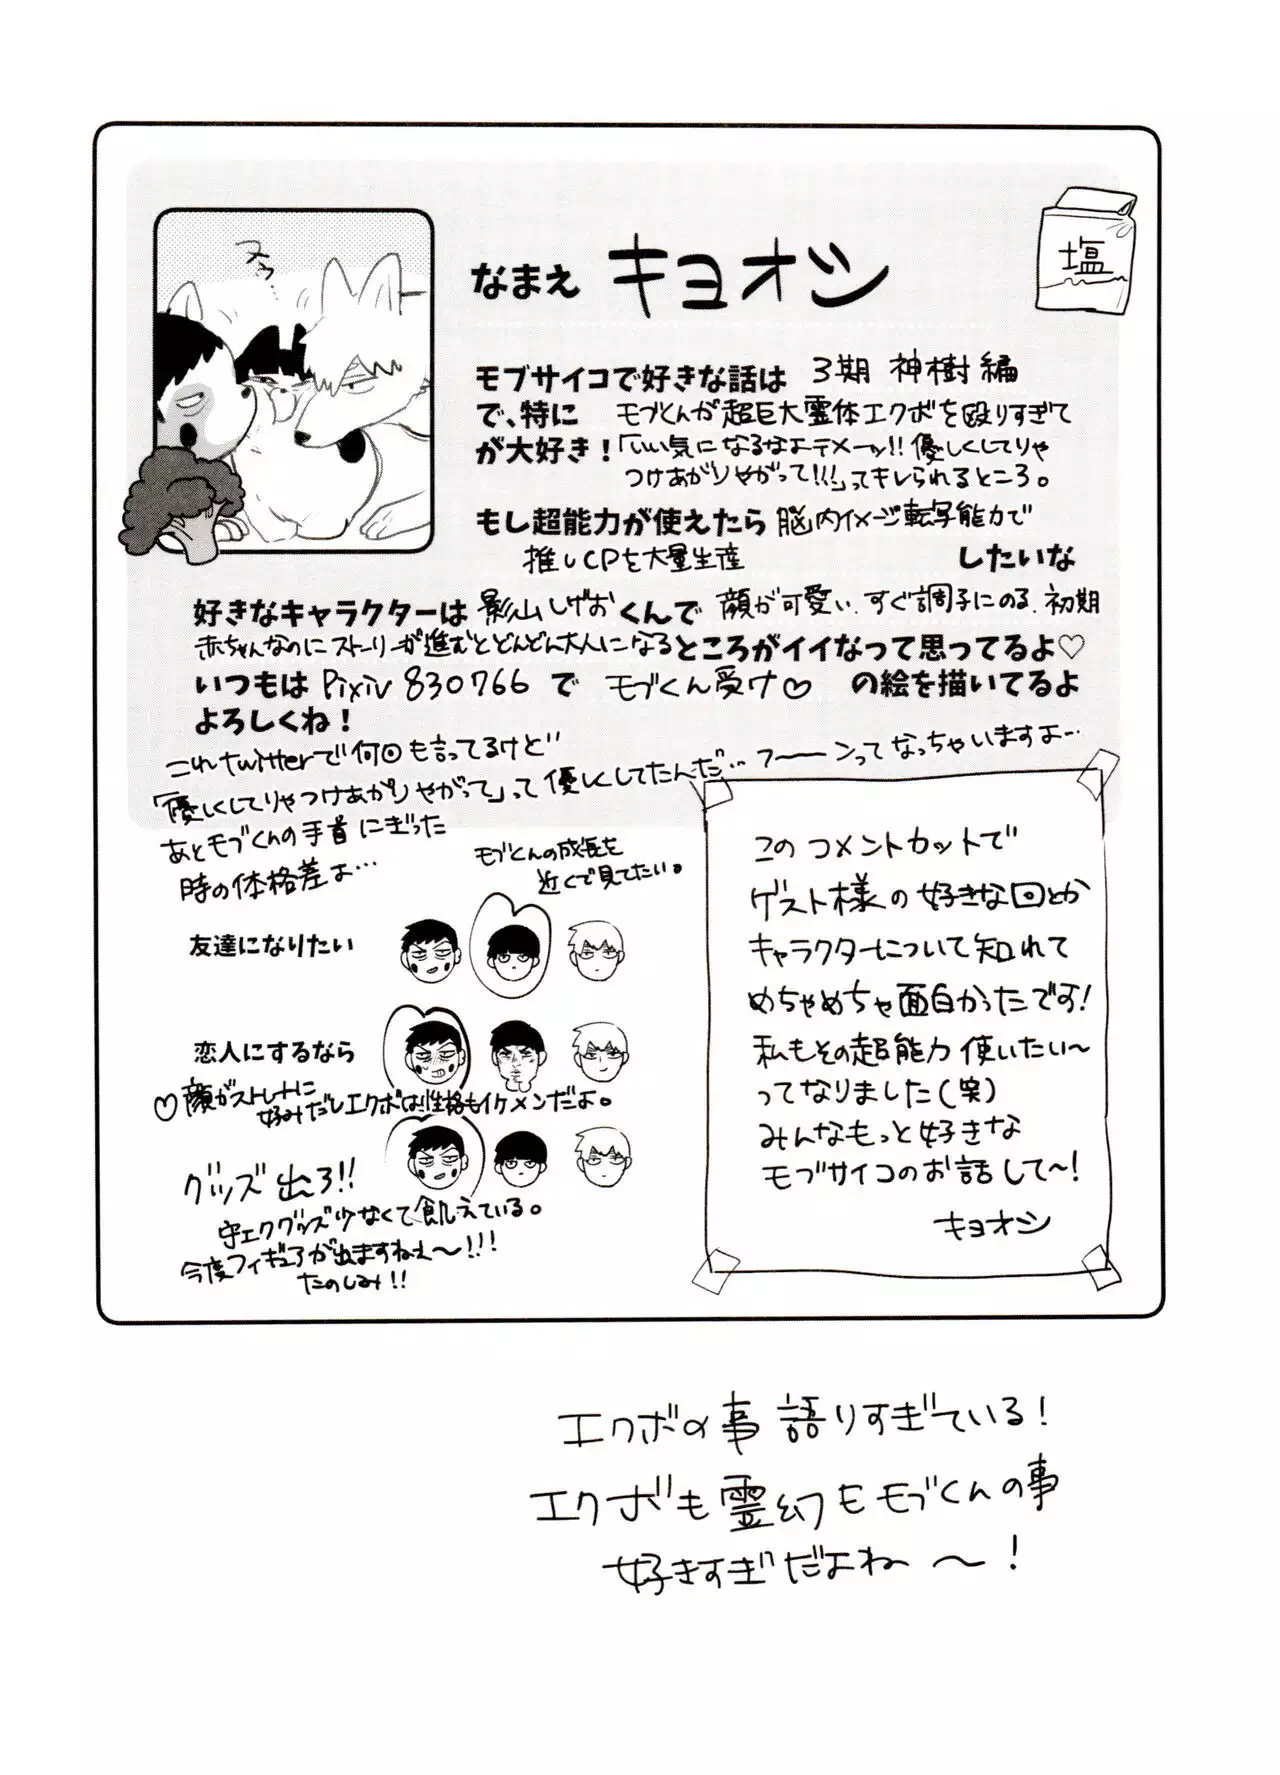 ヌゥ…
なまえ キョオシ
塩
モブサイコで好きな話は 3期 神樹編
で、特に モブくんが超巨大霊体エクボを殴りすぎて
が大好き！「いい気になるなよテメーッ!!優しくしてりゃ
つけあがりやがって!!!」ってキレられるところ。
もし超能力が使えたら 脳内イメージ転写能力で
推しCPを大量生産 したいな
好きなキャラクターは 影山しげお くんで 顔が可愛い、すぐ調子にのる、初期
赤ちゃんなのにストーリーが進むとどんどん大人になる ところがイイなって思ってるよ♡
いつもは Pixiv 830766 で モブくん受け♡ の絵を描いてるよ
よろしくね！
これtwitterで何回も言ってるけど
「優しくしてりゃつけあがりやがって」って 優しくしてたんだ… フーーンってなっちゃいますよ…
あとモブくんの手首 にぎった
時の体格差よ…
モブくんの成長を
近くで見てたい。
友達になりたい
恋人にするなら
♡顔がストレートに
好みだしエクボは!!性格もイケメンだよ。
グッズ 出ろ!!
守エクグッズ少なくて飢えている。
今度フィギュアが出ますねぇ〜!!!
たのしみ!!
このコメントカットで
ゲスト様の好きな回とか
キャラクターについて知れて
めちゃめちゃ面白かったです!
私もその超能力 使いたい〜
ってなりました(笑)
みんなもっと好きな
モブサイコのお話して〜!
キョオシ
エクボの事 語りすぎている!
エクボも霊幻もモブくんの事
好きすぎだよね〜!